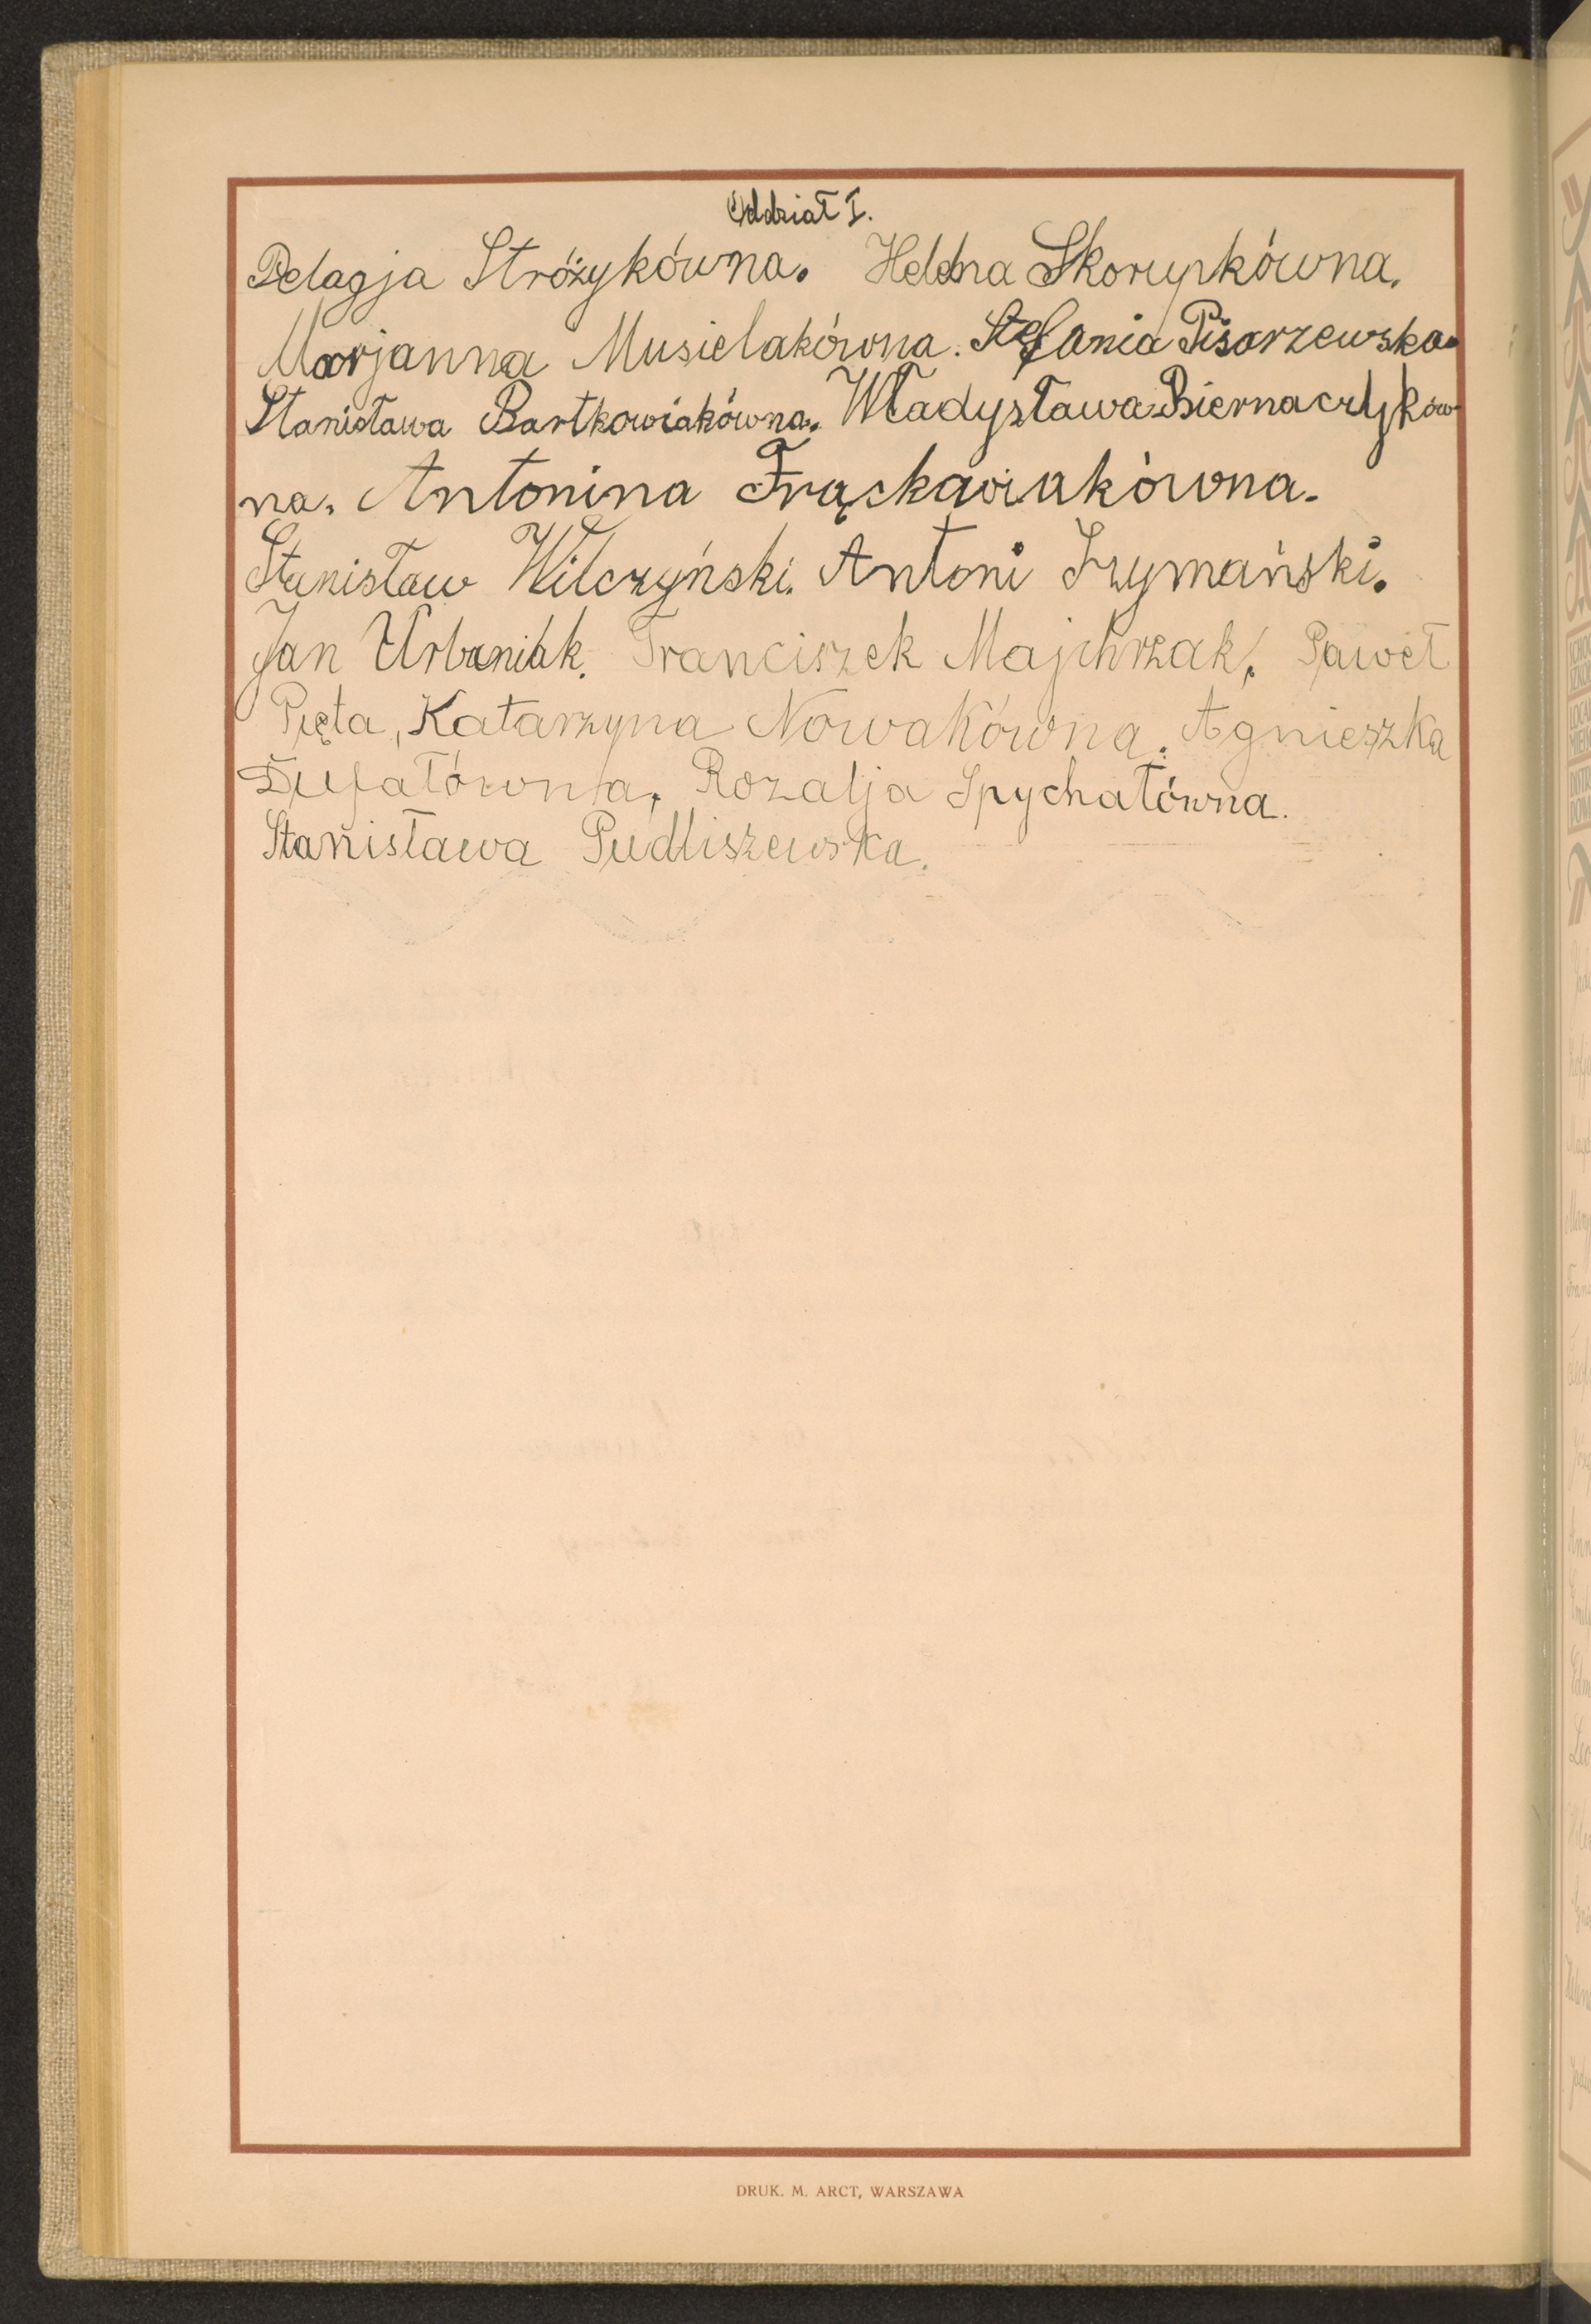 Oddział I.
Pelagja Stróżykówna. Helena Skorupkówna.
Marjanna Musielakówna. Stefania Pisarzewska.
Stanisława Bartkowiakówna. Władysława Biernaczyków-
na. Antonina Frąckawiakówna.
Stanisław Wilczyński. Antoni Szymański.
Jan Urbaniak. Franciszek Majchrzak, Paweł
Pięta, Katarzyna Nowakówna. Agnieszka
Rozalja Spychałówna.
Stanisława Pudliszewska.
DRUK. M. ARCT, WARSZAWA